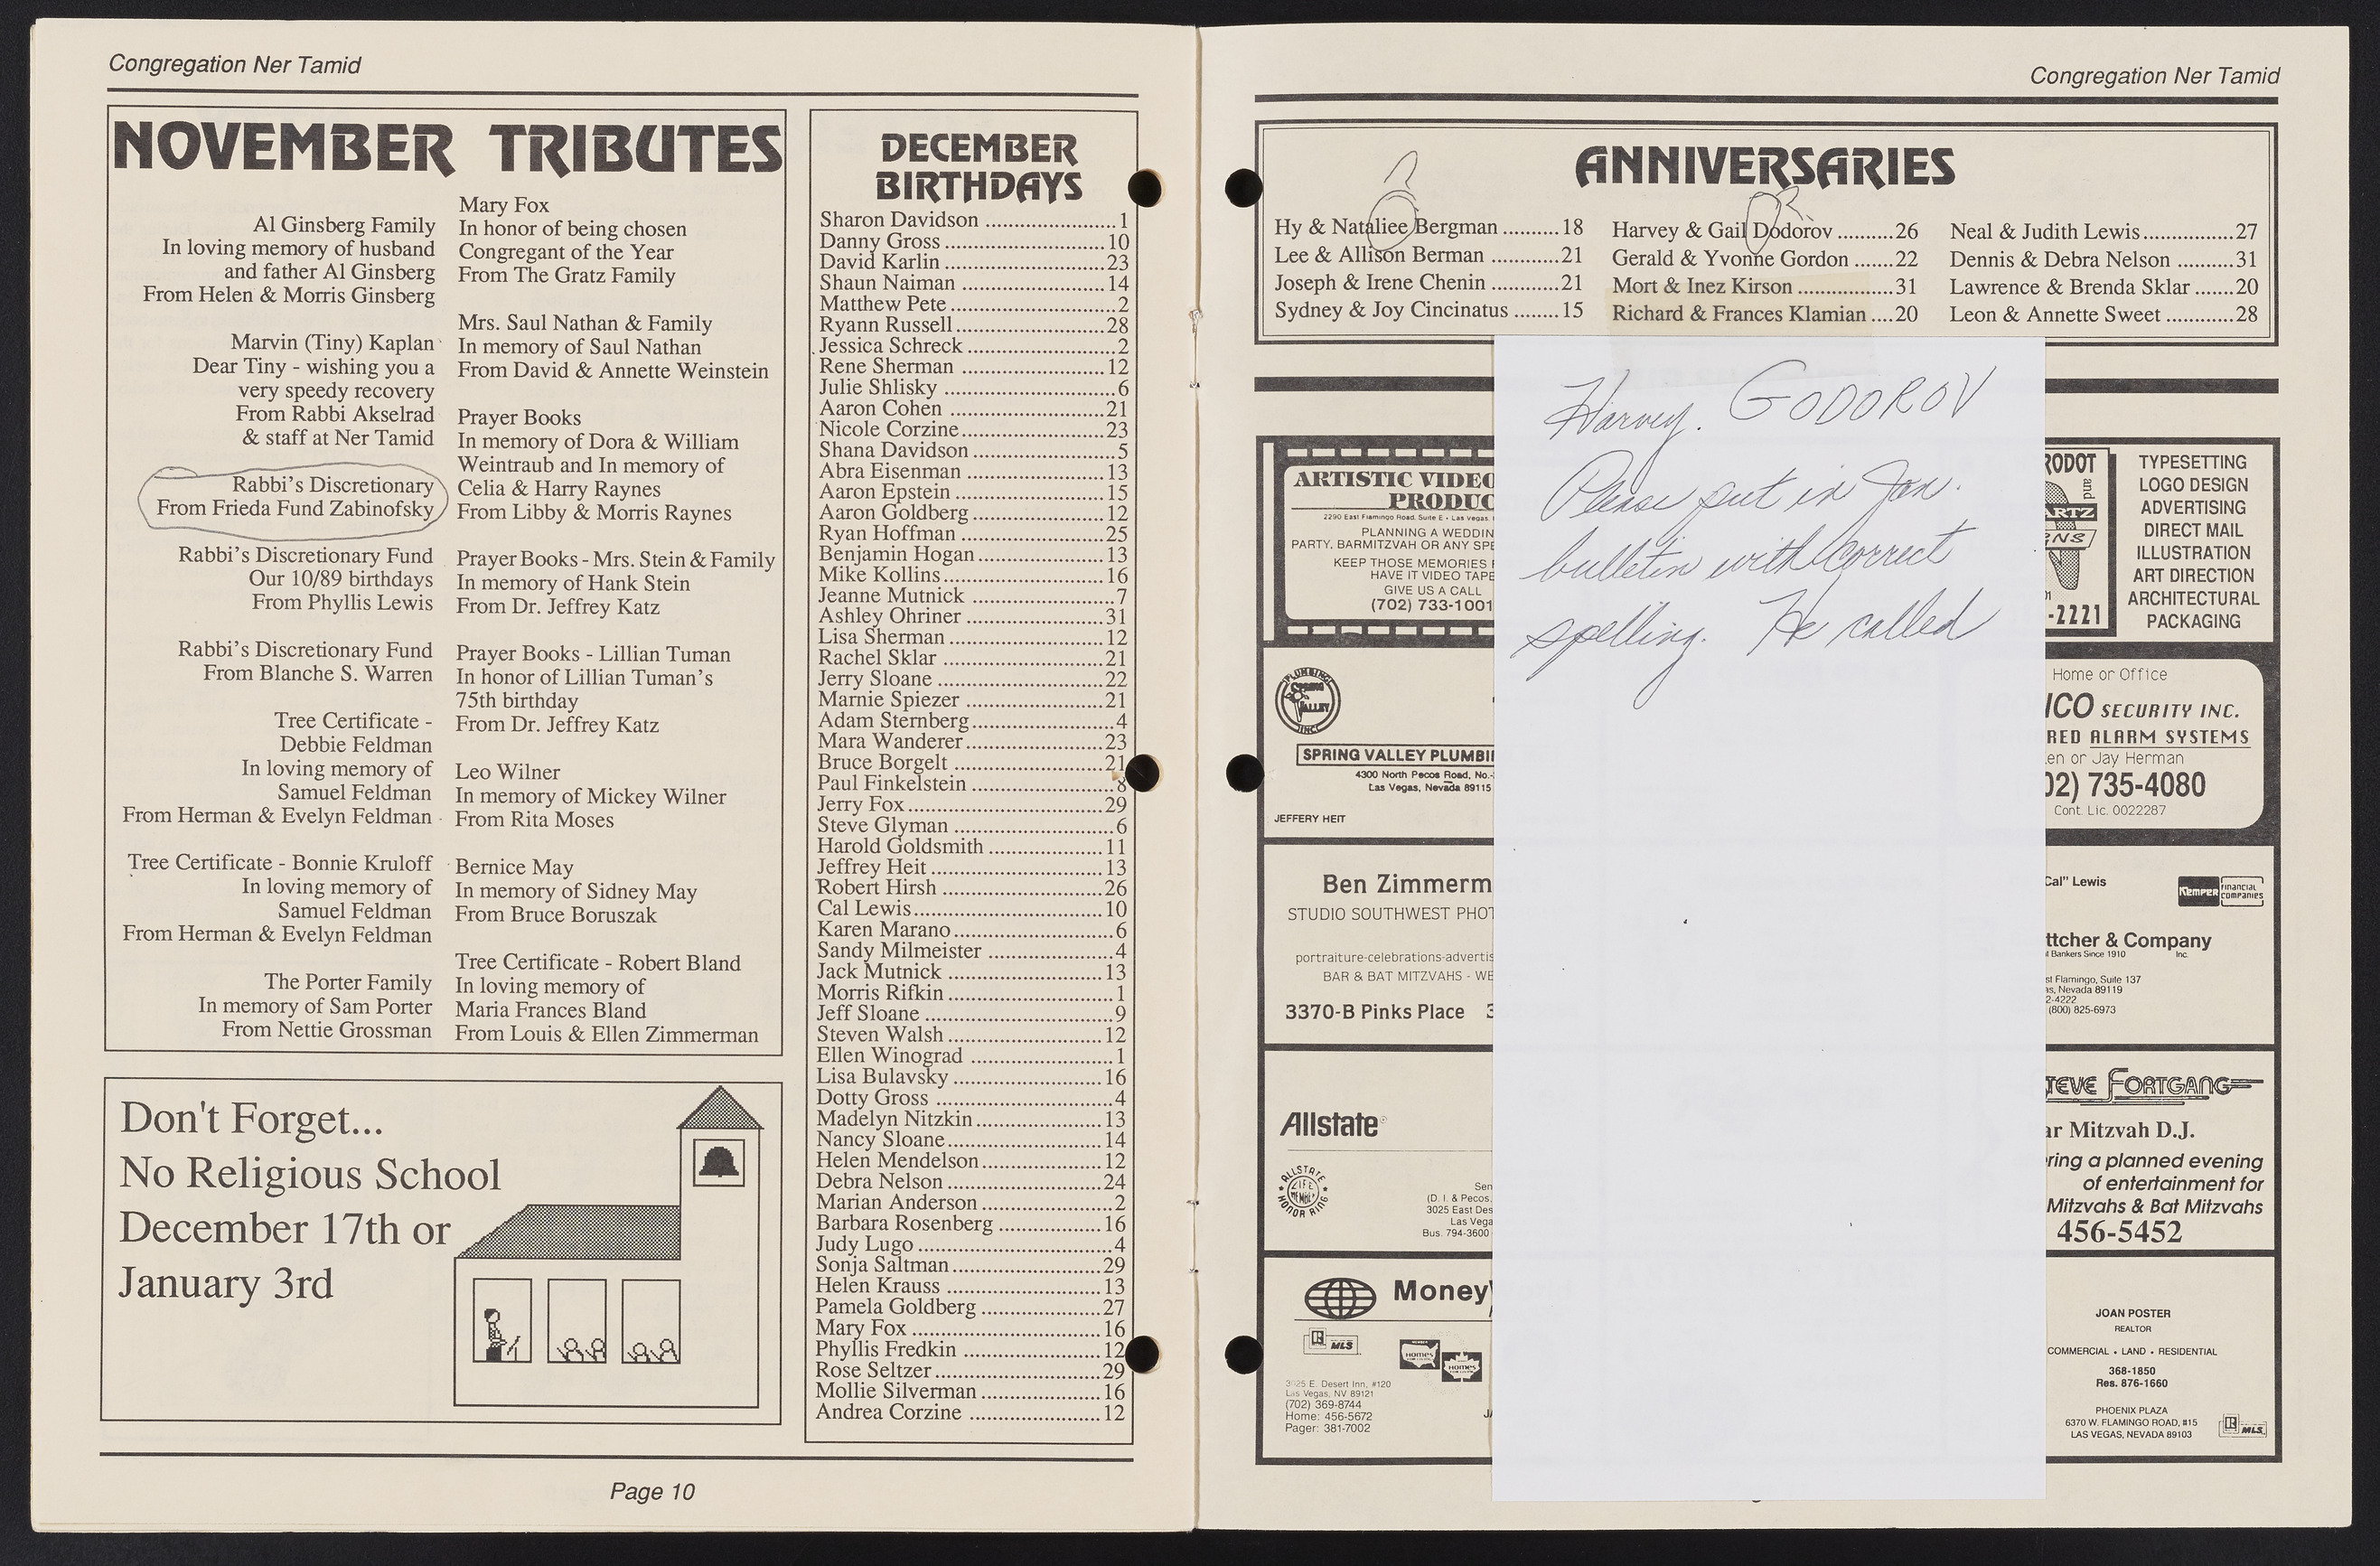 Congregation Ner Tamid
NOVEMBER TRIBUTES
Al Ginsberg Family
In loving memory of husband
and father Al Ginsberg
From Helen & Morris Ginsberg
Marvin (Tiny) Kaplan
Dear Tiny - wishing you a
very speedy recovery
From Rabbi Akselrad
& staff at Ner Tamid
Rabbi's Discretionary
From Frieda Fund Zabinofsky
Rabbi's Discretionary Fund
Our 10/89 birthdays
From Phyllis Lewis
Rabbi's Discretionary Fund
From Blanche S. Warren
Tree Certificate -
Debbie Feldman
In loving memory of
Samuel Feldman
From Herman & Evelyn Feldman
Tree Certificate - Bonnie Kruloff
In loving memory of
Samuel Feldman
From Herman & Evelyn Feldman
The Porter Family
In memory of Sam Porter
From Nettie Grossman
Mary Fox
In honor of being chosen
Congregant of the Year
From The Gratz Family
Mrs. Saul Nathan & Family
In memory of Saul Nathan
From David & Annette Weinstein
Prayer Books
In memory of Dora & William
Weintraub and In memory of
Celia & Harry Raynes
From Libby & Morris Raynes
Prayer Books - Mrs. Stein & Family
In memory of Hank Stein
From Dr. Jeffrey Katz
Prayer Books - Lillian Tuman
In honor of Lillian Tuman's
75th birthday
From Dr. Jeffrey Katz
Leo Wilner
In memory of Mickey Wilner
From Rita Moses
Bernice May
In memory of Sidney May
From Bruce Boruszak
Tree Certificate - Robert Bland
In loving memory of
Maria Frances Bland
From Louis & Ellen Zimmerman
Don't Forget...
No Religious School
December 17th or
January 3rd
DECEMBER
BIRTHDAYS
Sharon Davidson ........ 1
Danny Gross ........ 10
David Karlin ........ 23
Shaun Naiman ........ 14
Matthew Pete ........ 2
Ryann Russell ........ 28
Jessica Schreck ........ 2
Rene Sherman ........ 12
Julie Shlisky ........ 6
Aaron Cohen ........ 21
Nicole Corzine ........ 23
Shana Davidson ........ 5
Abra Eisenman ........ 13
Aaron Epstein ........ 15
Aaron Goldberg ........ 12
Ryan Hoffman ........ 25
Benjamin Hogan ........ 13
Mike Kollins ........ 16
Jeanne Mutnick ........ 7
Ashley Ohriner ........ 31
Lisa Sherman ........ 12
Rachel Sklar ........ 21
Jerry Sloane ........ 22
Marnie Spiezer ........ 21
Adam Sternberg ........ 4
Mara Wanderer ........ 23
Bruce Borgelt ........ 21
Paul Finkelstein ........ 8
Jerry Fox ........ 29
Steve Glyman ........ 6
Harold Goldsmith ........ 11
Jeffrey Heit ........ 13
Robert Hirsh ........ 26
Cal Lewis ........ 10
Karen Marano ........ 6
Sandy Milmeister ........ 4
Jack Mutnick ........ 13
Morris Rifkin ........ 1
Jeff Sloane ........ 9
Steven Walsh ........ 12
Ellen Winograd ........ 1
Lisa Bulavsky ........ 16
Dotty Gross ........ 4
Madelyn Nitzkin ........ 13
Nancy Sloane ........ 14
Helen Mendelson ........ 12
Debra Nelson ........ 24
Marian Anderson ........ 2
Barbara Rosenberg ........ 16
Judy Lugo ........ 4
Sonja Saltman ........ 29
Helen Krauss ........ 13
Pamela Goldberg ........ 27
Mary Fox ........ 16
Phyllis Fredkin ........ 12
Rose Seltzer ........ 29
Mollie Silverman ........ 16
Andrea Corzine ........ 12
Page 10
Congregation Ner Tamid
ANNIVERSARIES
Hy & Nataliee Bergman ..........18
Lee & Allison Berman ............21
Joseph & Irene Chenin ............21
Sydney & Joy Cincinatus ........15
Harvey & Gail Dodorov ..........26
Gerald & Yvonne Gordon .......22
Mort & Inez Kirson .................31
Richard & Frances Klamian ....20
Neal & Judith Lewis................27
Dennis & Debra Nelson ..........31
Lawrence & Brenda Sklar .......20
Leon & Annette Sweet ............28
Harvey. GODOROV
Please put in Jan.
bulletin with correct
spelling. He called
ARTISTIC VIDEO
PRODUC
2290 East Flamingo Road, Suite E • Las Vegas,
PLANNING A WEDDIN
PARTY, BARMITZVAH OR ANY SPE
KEEP THOSE MEMORIES
HAVE IT VIDEO TAPE
GIVE US A CALL
(702) 733-1001
RODOT
and
ARTZ
GNS
-2221
TYPESETTING
LOGO DESIGN
ADVERTISING
DIRECT MAIL
ILLUSTRATION
ART DIRECTION
ARCHITECTURAL
PACKAGING
PLUMBING
SPRING
VALLEY
INC.
SPRING VALLEY PLUMBI
4300 North Pecos Road, No.
Las Vegas, Nevada 89115
JEFFERY HEIT
Home or Office
ICO SECURITY INC.
RED ALARM SYSTEMS
en or Jay Herman
02) 735-4080
Cont. Lic. 0022287
Ben Zimmerm
STUDIO SOUTHWEST PHOT
portraiture-celebrations-advertis
BAR & BAT MITZVAHS - WE
3370-B Pinks Place 3
Cal" Lewis
KEMPER FINANCIAL COMPANIES
ttcher & Company
t Bankers Since 1910 Inc.
st Flamingo, Suite 137
as, Nevada 89119
2-4222
(800) 825-6973
Allstate
ALLSTATE
LIFE
MEMBER
HONOR RING
Sen
(D. I. & Pecos,
3025 East Des
Las Vega
Bus. 794-3600
TEVE FORTGANG
ar Mitzvah D.J.
ring a planned evening
of entertainment for
Mitzvahs & Bat Mitzvahs
456-5452
Money
MLS
HOMES
HOMES
3025 E. Desert Inn, #120
Las Vegas, NV 89121
(702) 369-8744
Home: 456-5672
Pager: 381-7002
JA
JOAN POSTER
REALTOR
COMMERCIAL • LAND • RESIDENTIAL
368-1850
Res. 876-1660
PHOENIX PLAZA
6370 W. FLAMINGO ROAD, #15
LAS VEGAS, NEVADA 89103
MLS